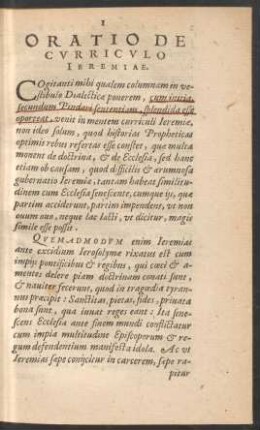 1
ORATIO DE
CVRRICVLO
IEREMIAE.
COgitanti mihi qualem columnam in ve-
stibulo Dialectica ponerem, cum initia,
secundum Pindari sententiam, splendida esse
oporteat, venit in mentem curriculi Ieremiæ,
non ideo solum, quod historias Propheticas
optimis rebus refertas esse constet, quæ multa
monent de doctrina, & de Ecclesia, sed hanc
etiam ob causam, quod difficilis & ærumnosa
gubernatio Ieremiæ, tantam habeat similitu-
dinem cum Ecclesia senescente, cumque ijs, quæ
partim acciderunt, partim impendent, vt non
ouum ouo, neque lac lacti, vt dicitur, magis
simile esse possit.
QVEMADMODVM enim Ieremias
ante excidium Ierosolymæ rixatus est cum
impijs pontificibus & regibus, qui cæci & a-
mentes delere piam doctrinam conati sunt,
& nauiter fecerunt, quod in tragœdia tyran-
nus præcipit: Sanctitas, pietas, fides, priuata
bona sunt, qua iuuat reges eant: Ita sene-
scens Ecclesia ante finem mundi conflictatur
cum impia multitudine Episcoporum & re-
gum defendentium manifesta idola. Ac vt
Ieremias sæpe conijcitur in carcerem, sæpe ra-
pitur